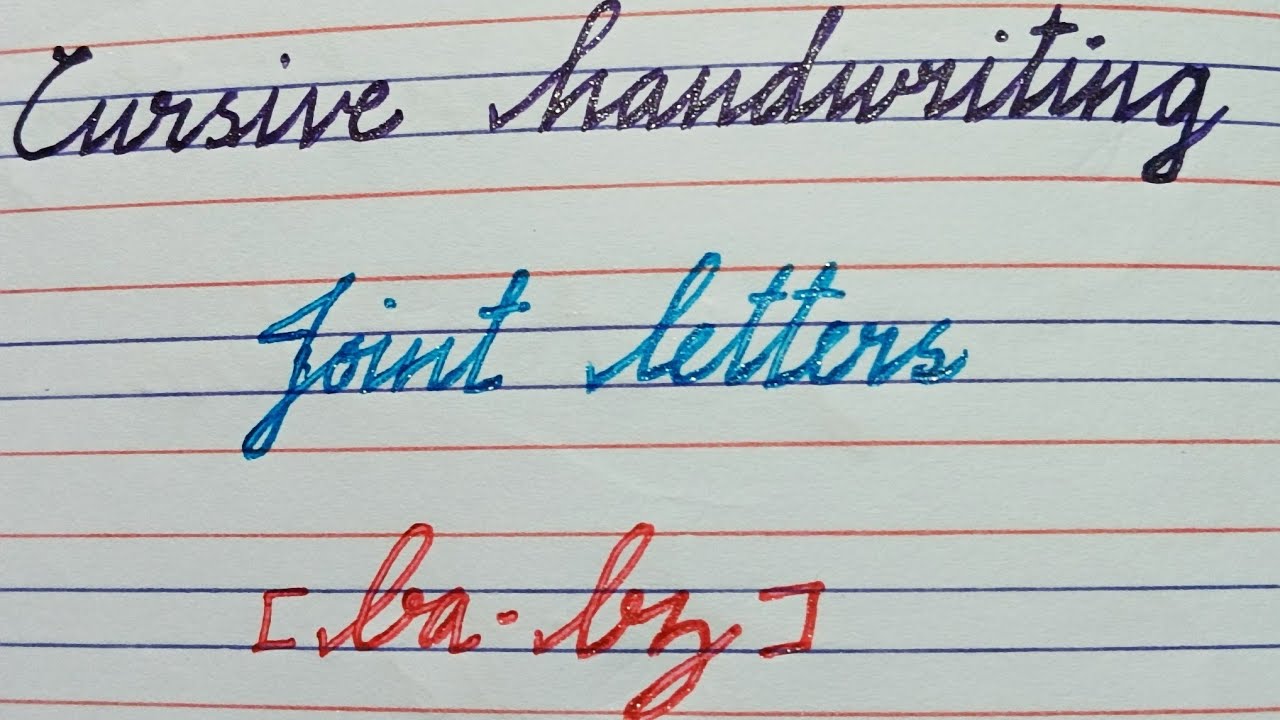 Cursive handwriting
Joint letters
[ba-bz]